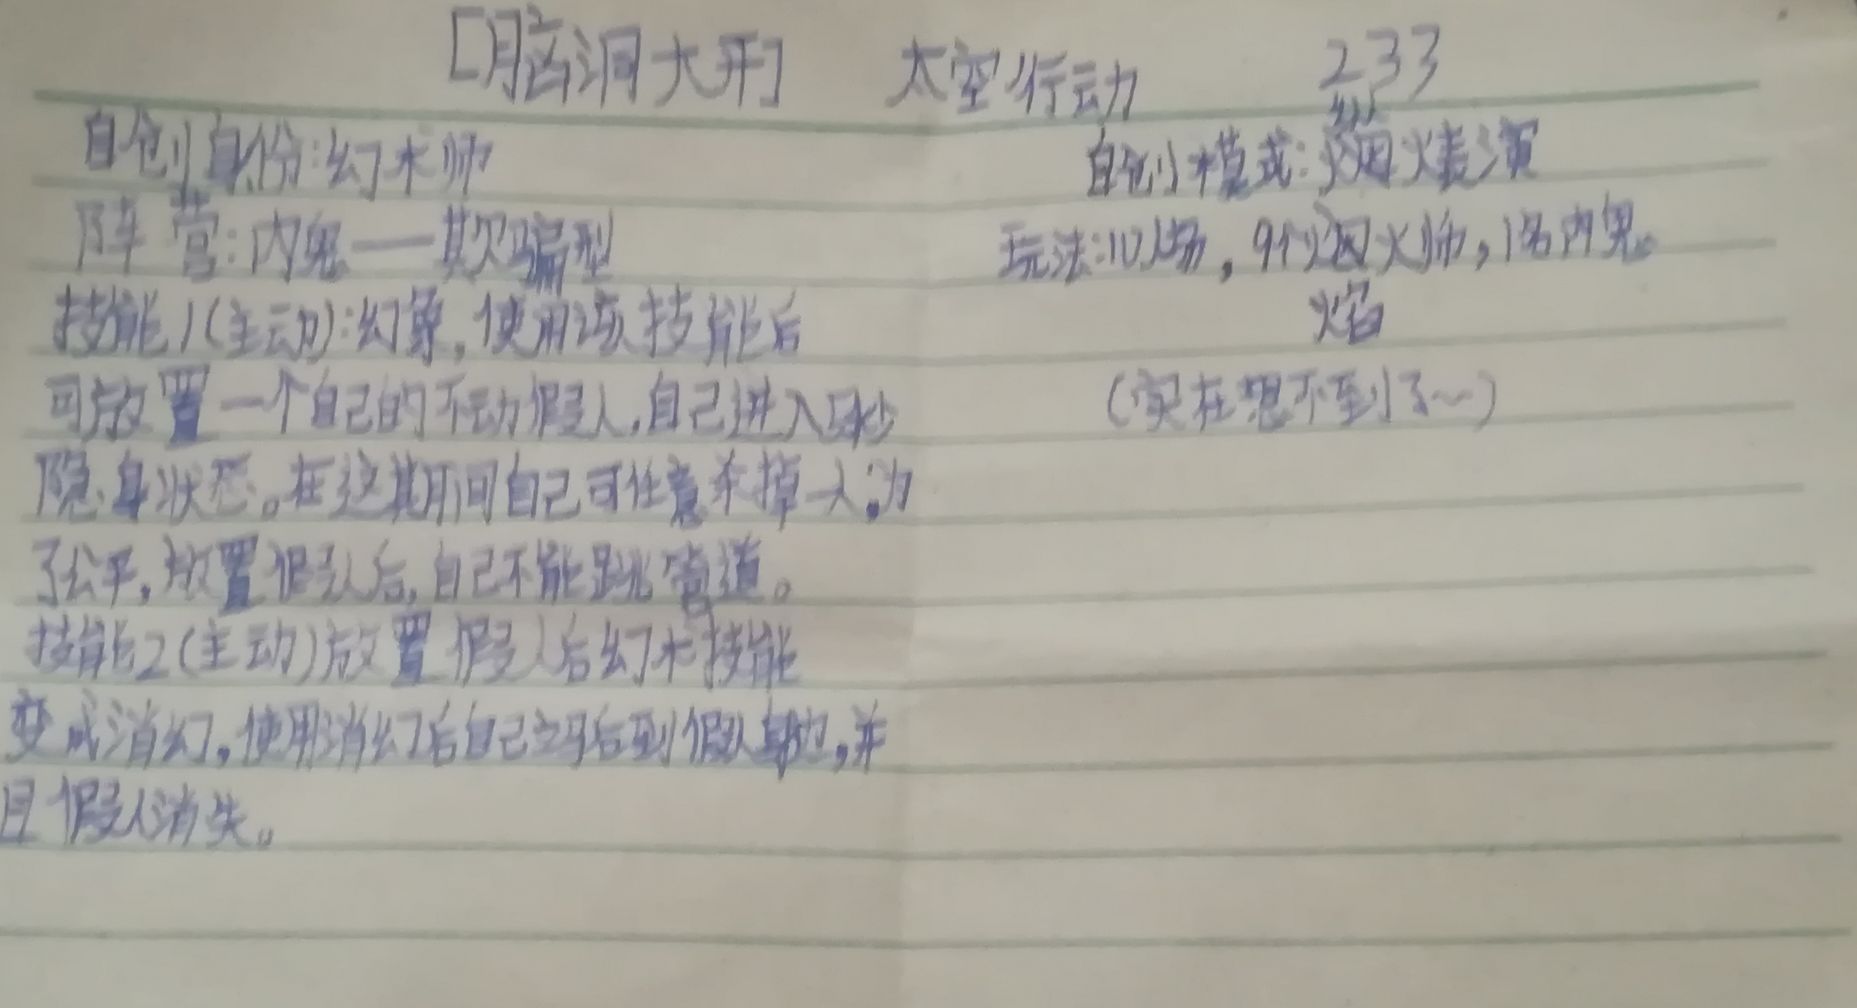 [脑洞大开] 太空行动 233
自创身份:幻术师
阵营:内鬼——欺骗型
技能1(主动):幻象,使用该技能后
可放置一个自己的不动假人,自己进入秒
隐身状态。在这期间自己可任意杀掉一人,为
了公平,放置假人后,自己不能跳管道。
技能2(主动)放置假人后幻术技能
变成消幻,使用消幻后自己立马后到假人身边,并
且假人消失。
自创模式:烟火表演
玩法:10人场,9个烟火师,1名内鬼。
焰
(实在想不到了~)